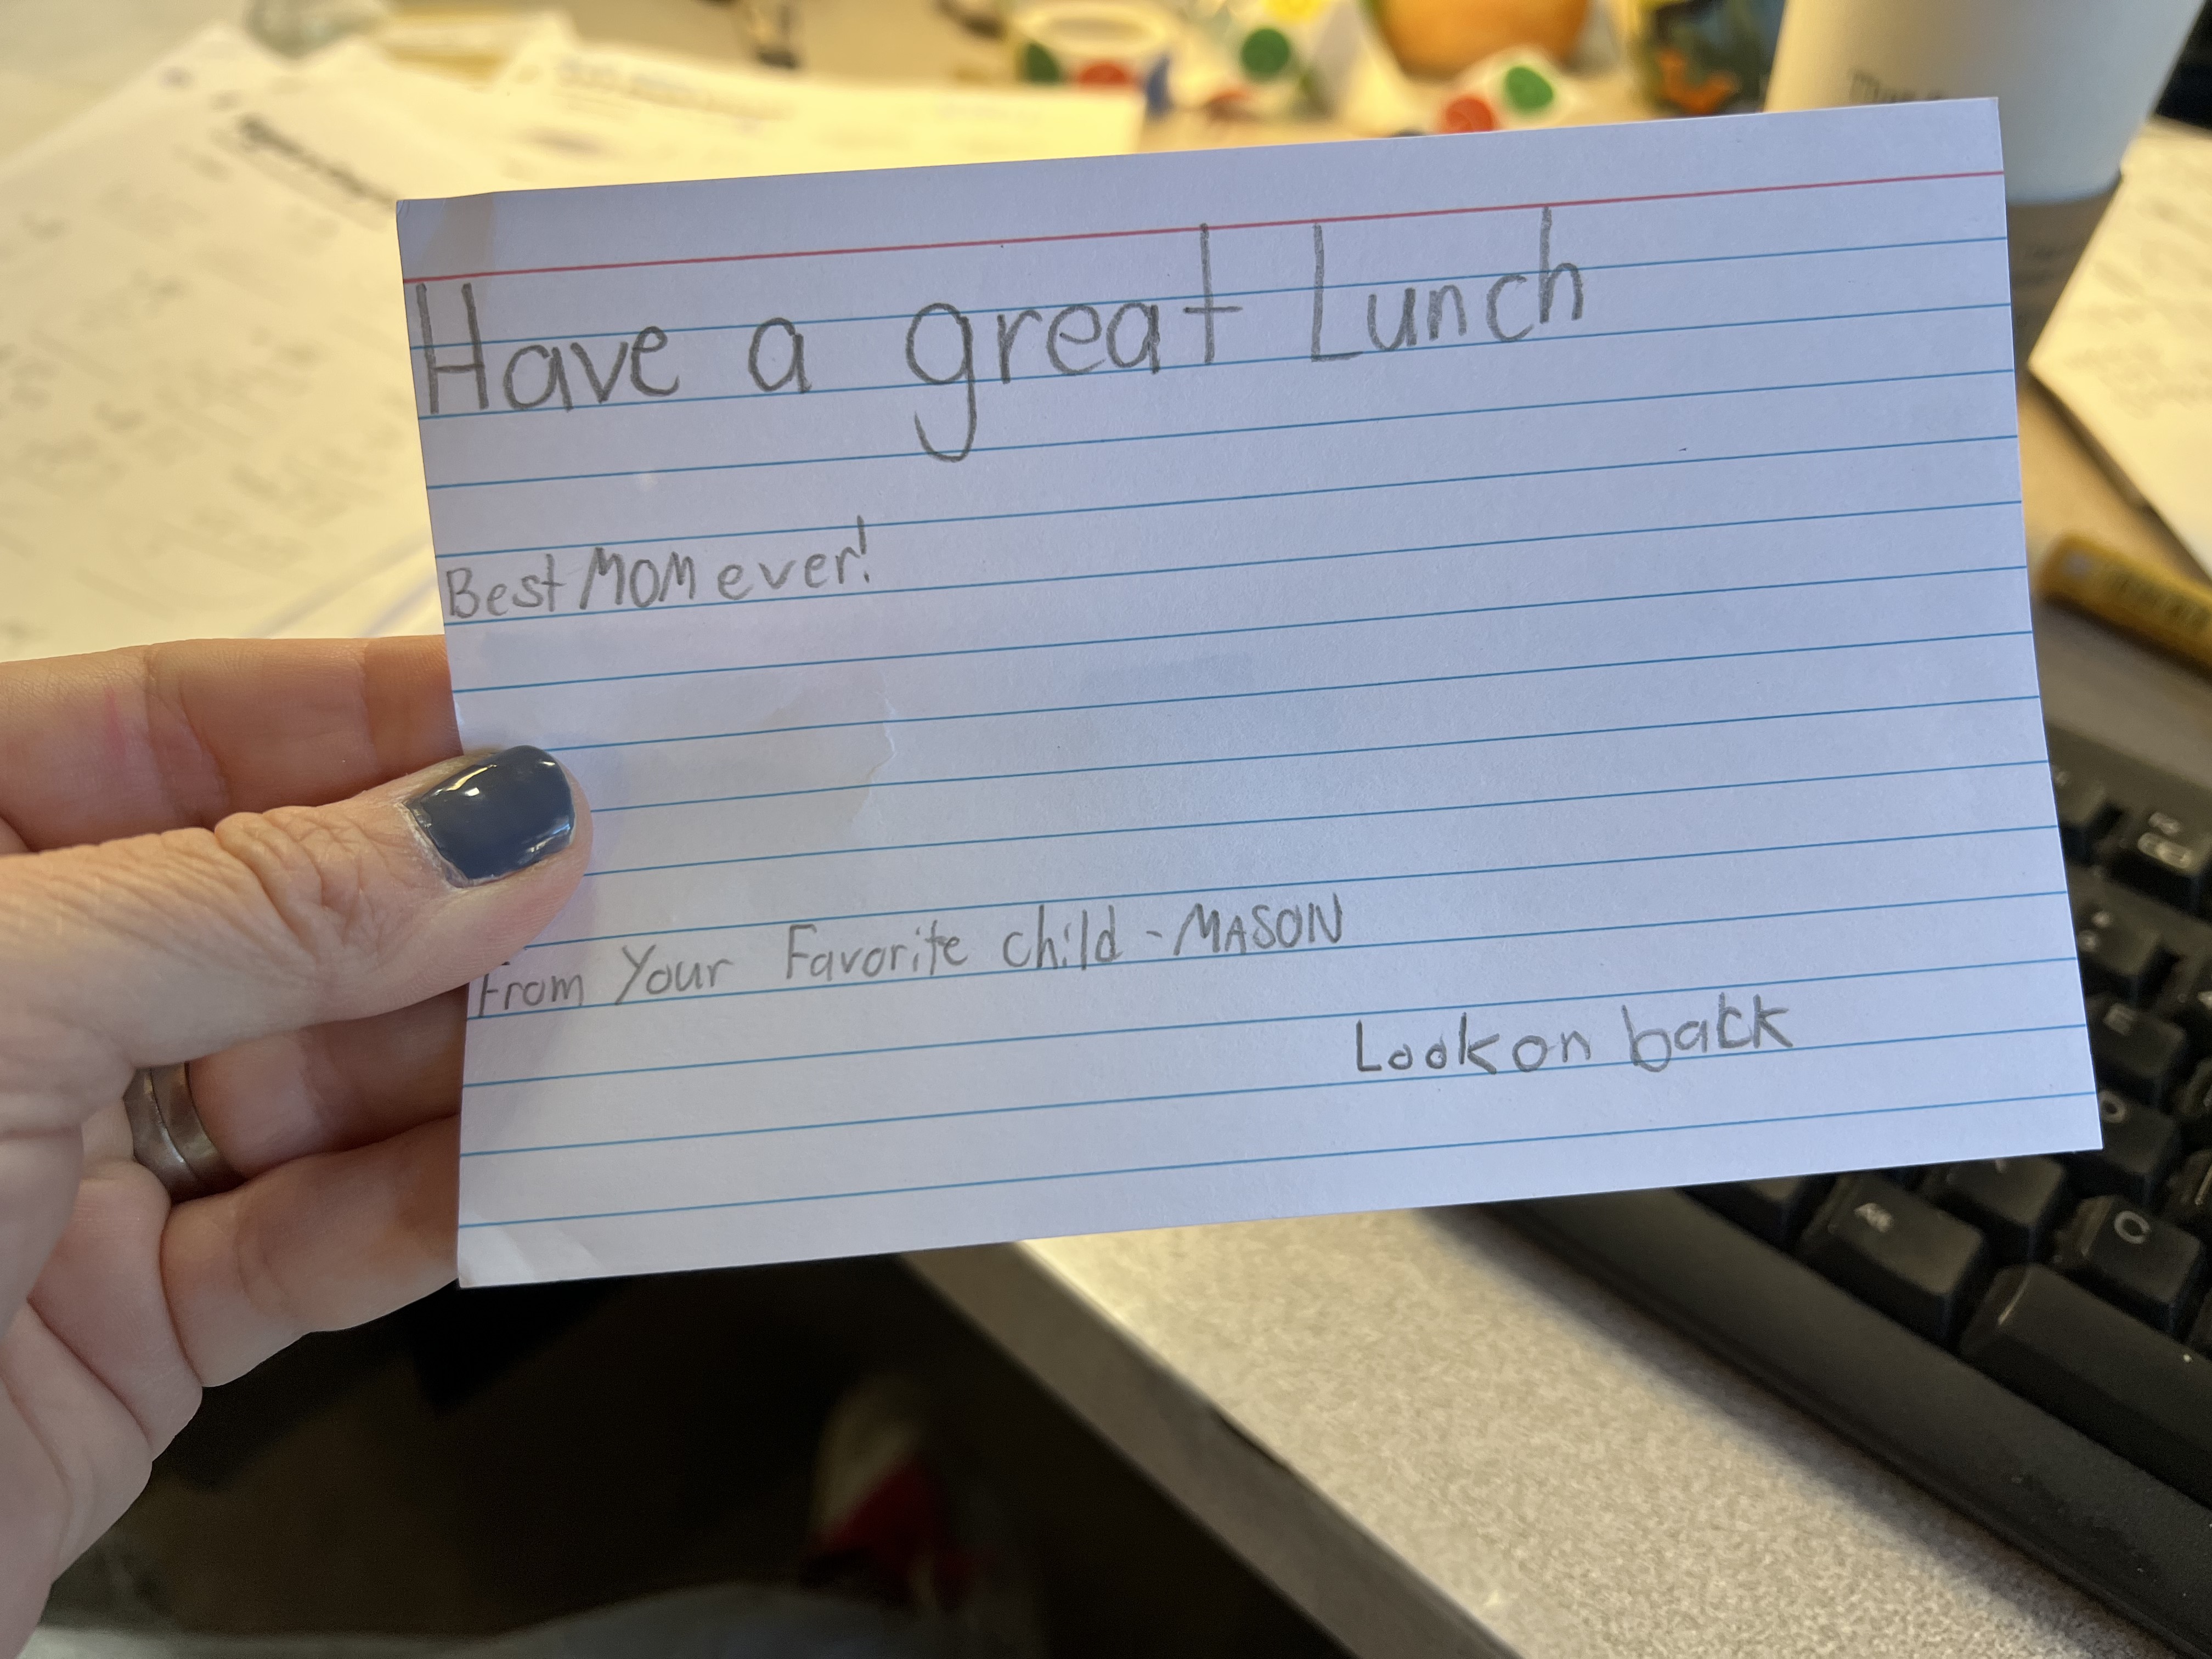 Have a great Lunch
Best MOM ever!
From Your Favorite child - MASON
Look on back
Alt
C
E